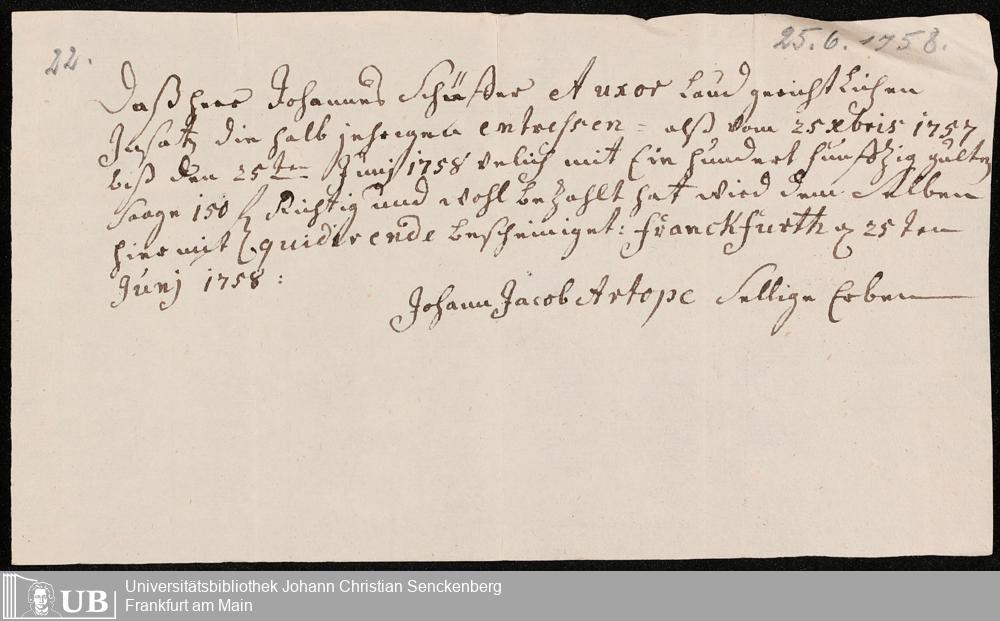 22.
25.6.1758.
Daß herr Johannes Schäffer et uxor laud gerichtlichen
Insatz die halb jehrigen entressen = alß vom 25 xbris 1757
biß den 25ten Junj 1758 mit Ein hundert gulten
Saage 150 f Richtig und wohl bezahlt hat wird dem Selben
hier mit quidirende bescheiniget: Franckfurth 25ten
Junj 1758:
Johann Jacob Artope Sellige Erben
UB
Universitätsbibliothek Johann Christian Senckenberg
Frankfurt am Main